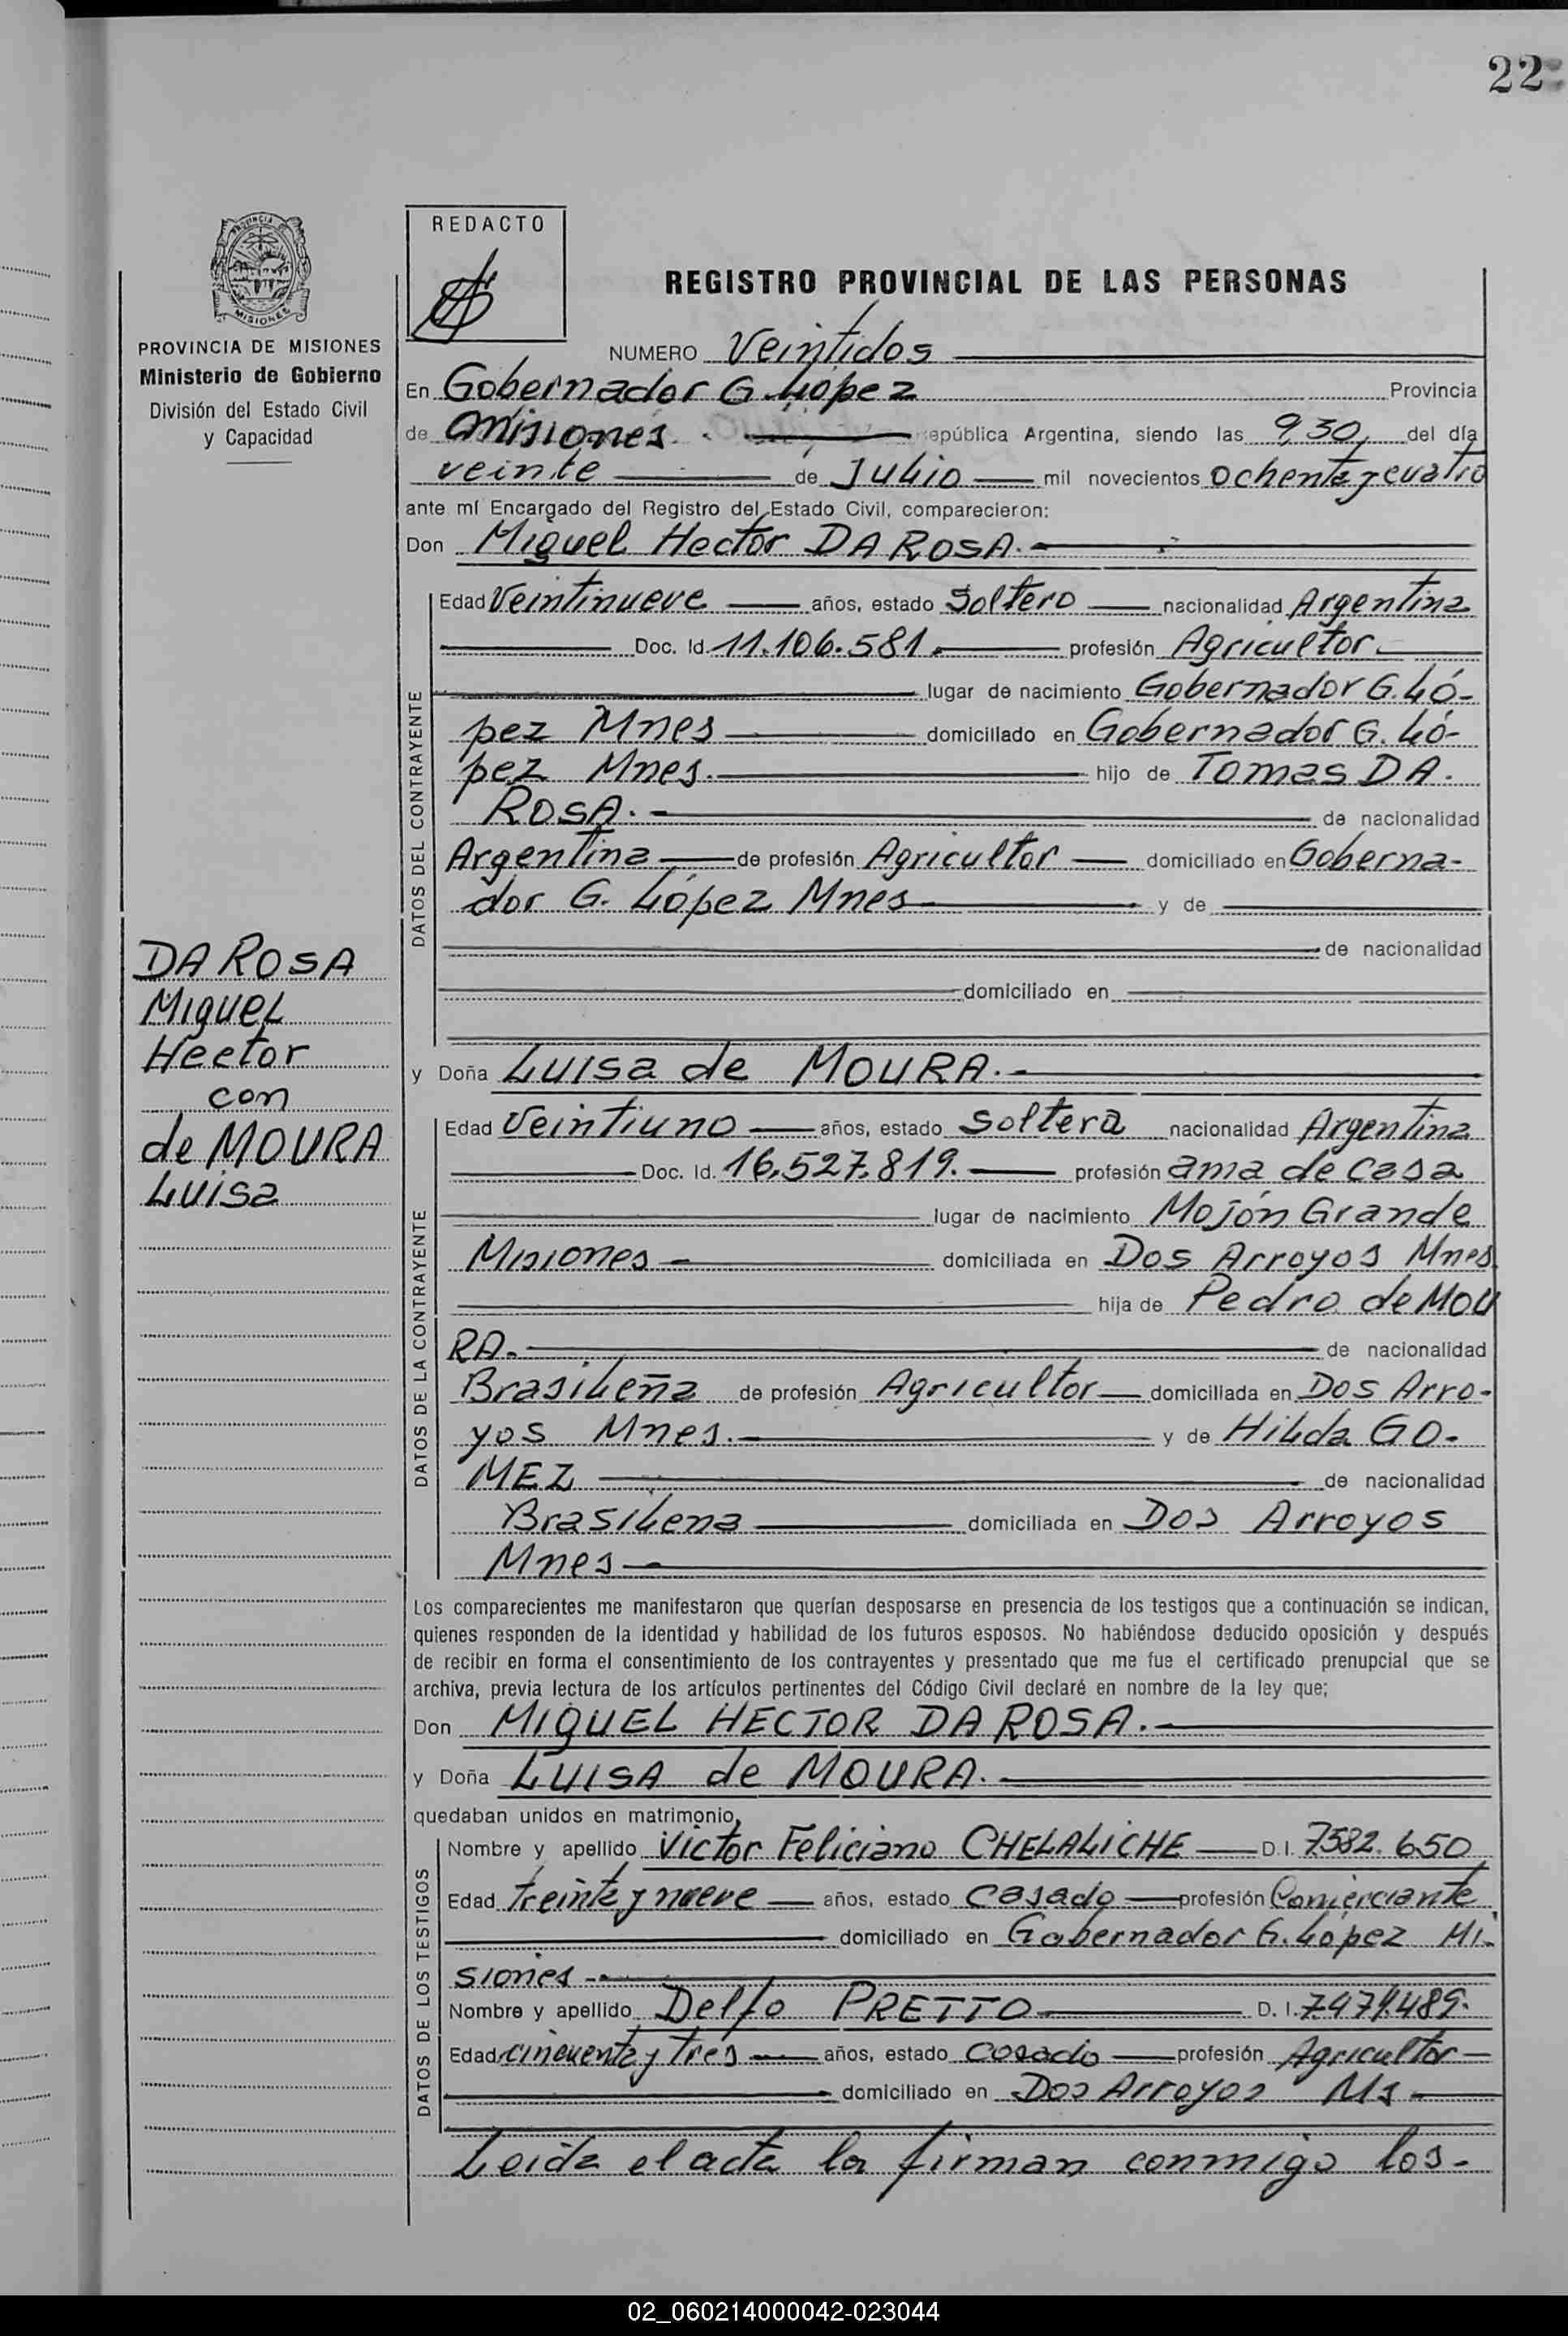 22
REDACTO
PROVINCIA DE
MISIONES
PROVINCIA DE MISIONES
Ministerio de Gobierno
División del Estado Civil
y Capacidad
REGISTRO PROVINCIAL DE LAS PERSONAS
NUMERO Veintidos
En Gobernador G. López Provincia
de Misiones. República Argentina, siendo las 9,30 del día
veinte de Julio mil novecientos ochenta y cuatro
ante mí Encargado del Registro del Estado Civil, comparecieron:
Don Miguel Hector DA ROSA.
DATOS DEL CONTRAYENTE
Edad Veintinueve años, estado Soltero nacionalidad Argentina
Doc. Id. 11.106.581. profesión Agricultor.
lugar de nacimiento Gobernador G. Ló-
pez Mnes domiciliado en Gobernador G. Ló-
pez Mnes. hijo de Tomas DA.
ROSA. de nacionalidad
Argentina de profesión Agricultor domiciliado en Goberna-
dor G. López Mnes y de
de nacionalidad
domiciliado en
DA ROSA
Miguel
Hector
con
de MOURA
Luisa
y Doña Luisa de MOURA.
DATOS DE LA CONTRAYENTE
Edad Veintiuno años, estado Soltera nacionalidad Argentina
Doc. Id. 16.527.819. profesión ama de casa
lugar de nacimiento Mojón Grande
Misiones domiciliada en Dos Arroyos Mnes
hija de Pedro de MOU
RA. de nacionalidad
Brasileña de profesión Agricultor domiciliada en Dos Arro-
yos Mnes. y de Hilda GO-
MEZ de nacionalidad
Brasilena domiciliada en Dos Arroyos
Mnes
Los comparecientes me manifestaron que querían desposarse en presencia de los testigos que a continuación se indican,
quienes responden de la identidad y habilidad de los futuros esposos. No habiéndose deducido oposición y después
de recibir en forma el consentimiento de los contrayentes y presentado que me fue el certificado prenupcial que se
archiva, previa lectura de los artículos pertinentes del Código Civil declaré en nombre de la ley que;
Don MIGUEL HECTOR DA ROSA.
y Doña LUISA de MOURA.
quedaban unidos en matrimonio,
DATOS DE LOS TESTIGOS
Nombre y apellido Victor Feliciano CHELALICHE D.I. 7582.650
Edad treinta y nueve años, estado Casado profesión Comerciante
domiciliado en Gobernador G. López Mi-
siones
Nombre y apellido Delfo PRETTO D.I. 7.474.489.
Edad cincuenta y tres años, estado casado profesión Agricultor
domiciliado en Dos Arroyos Ms
Leida el acta la firman conmigo los-
02_060214000042-023044